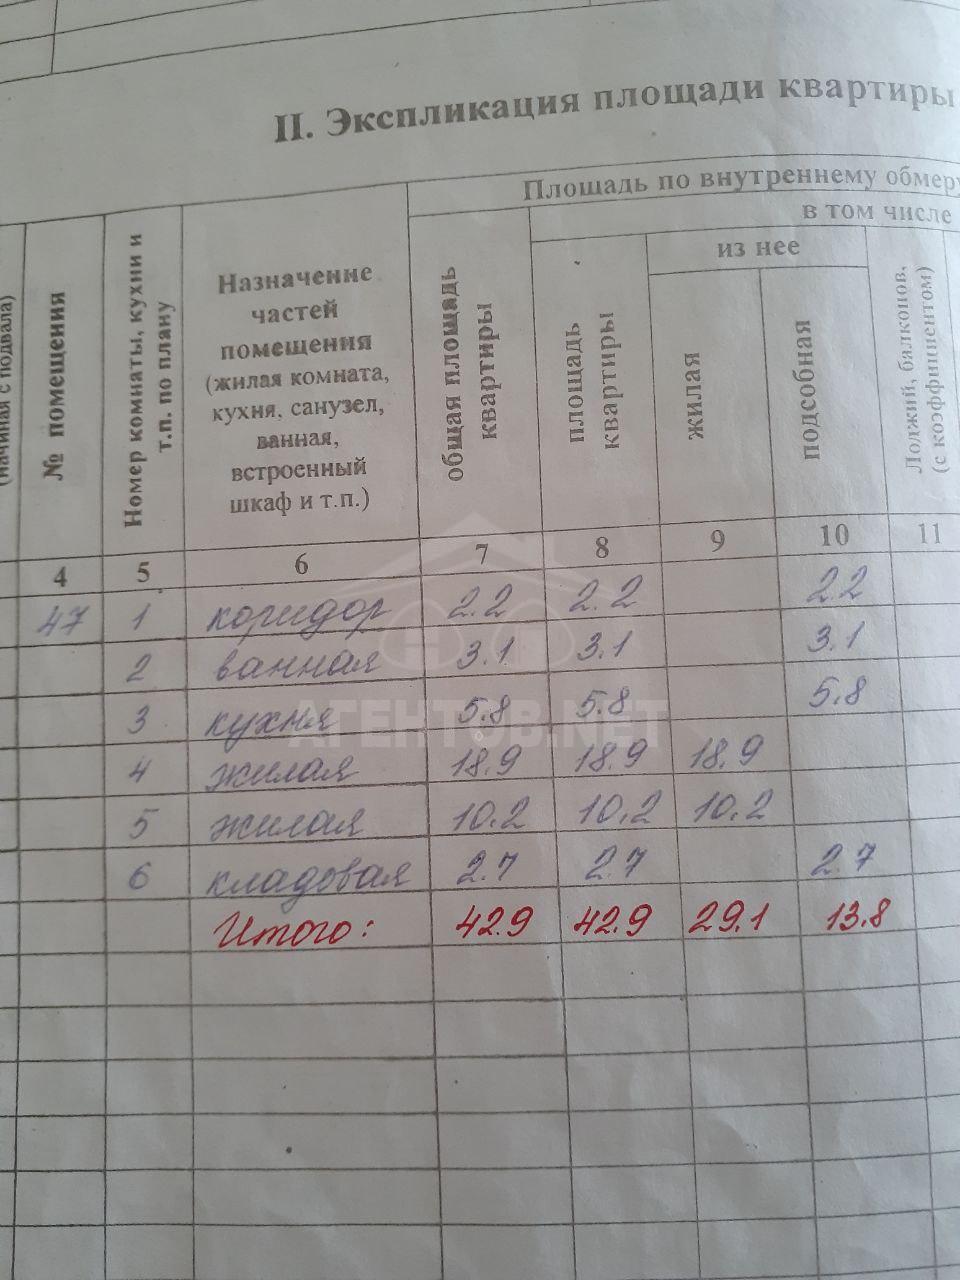 II. Экспликация площади квартиры
Площадь по внутреннему обмеру
в том числе
из нее
(начиная с подвала)
№ помещения
Номер комнаты, кухни и
т.п. по плану
Назначение
частей
помещения
(жилая комната,
кухня, санузел,
ванная,
встроенный
шкаф и т.п.)
общая площадь
квартиры
площадь
квартиры
жилая
подсобная
Лоджий, балконов,
(с коэффициентом)
4 5 6 7 8 9 10 11
47 1 коридор 2.2 2.2 2.2
2 ванная 3.1 3.1 3.1
3 кухня 5.8 5.8 5.8
АГЕНТОВ.NET
4 жилая 18.9 18.9 18.9
5 жилая 10.2 10.2 10.2
6 кладовая 2.7 2.7 2.7
Итого: 42.9 42.9 29.1 13.8